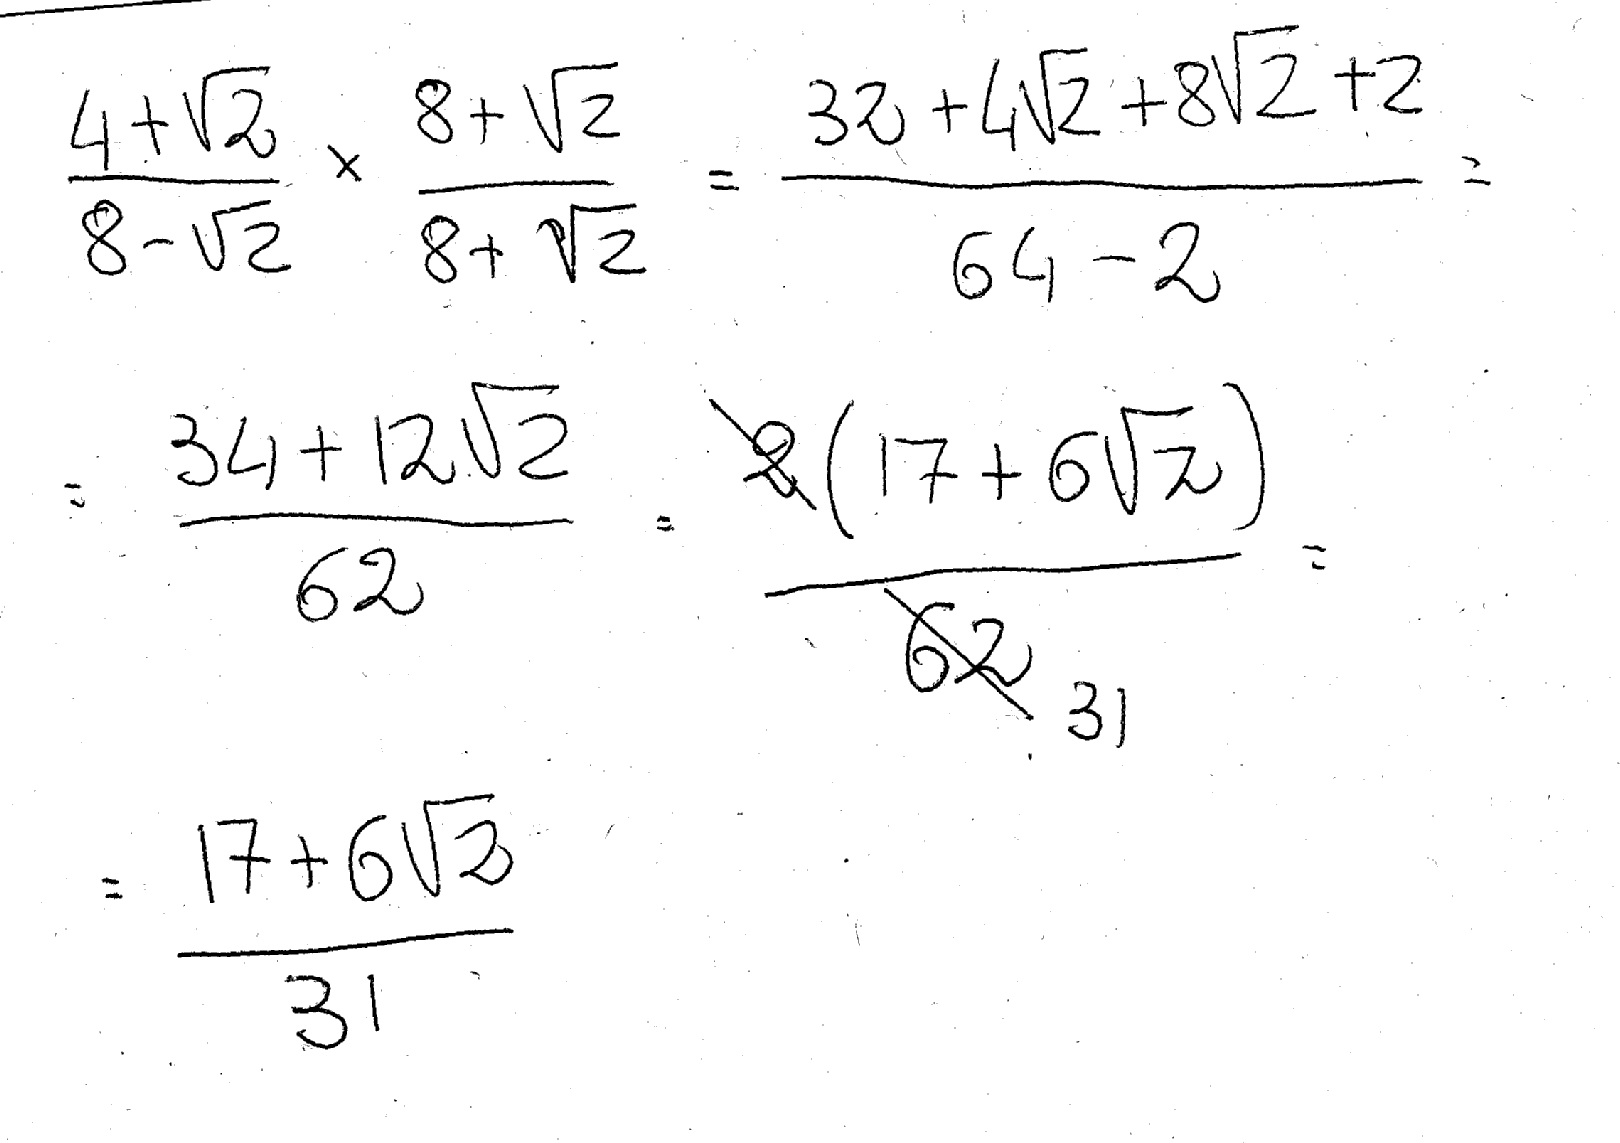 (4+√2)/(8-√2) × (8+√2)/(8+√2) = (32+4√2+8√2+2)/(64-2) =
= (34+12√2)/62 = 2(17+6√2)/62 31 =
= (17+6√2)/31